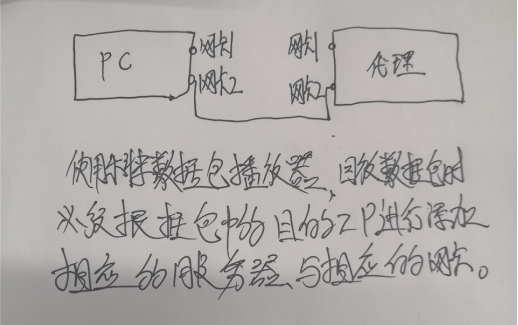 PC
网卡1
网卡2
网卡1
网卡2
代理
使用科来数据包播放器,回放数据包时
必须根据包中的目的IP进行添加
相应的服务器、与相应的网卡。